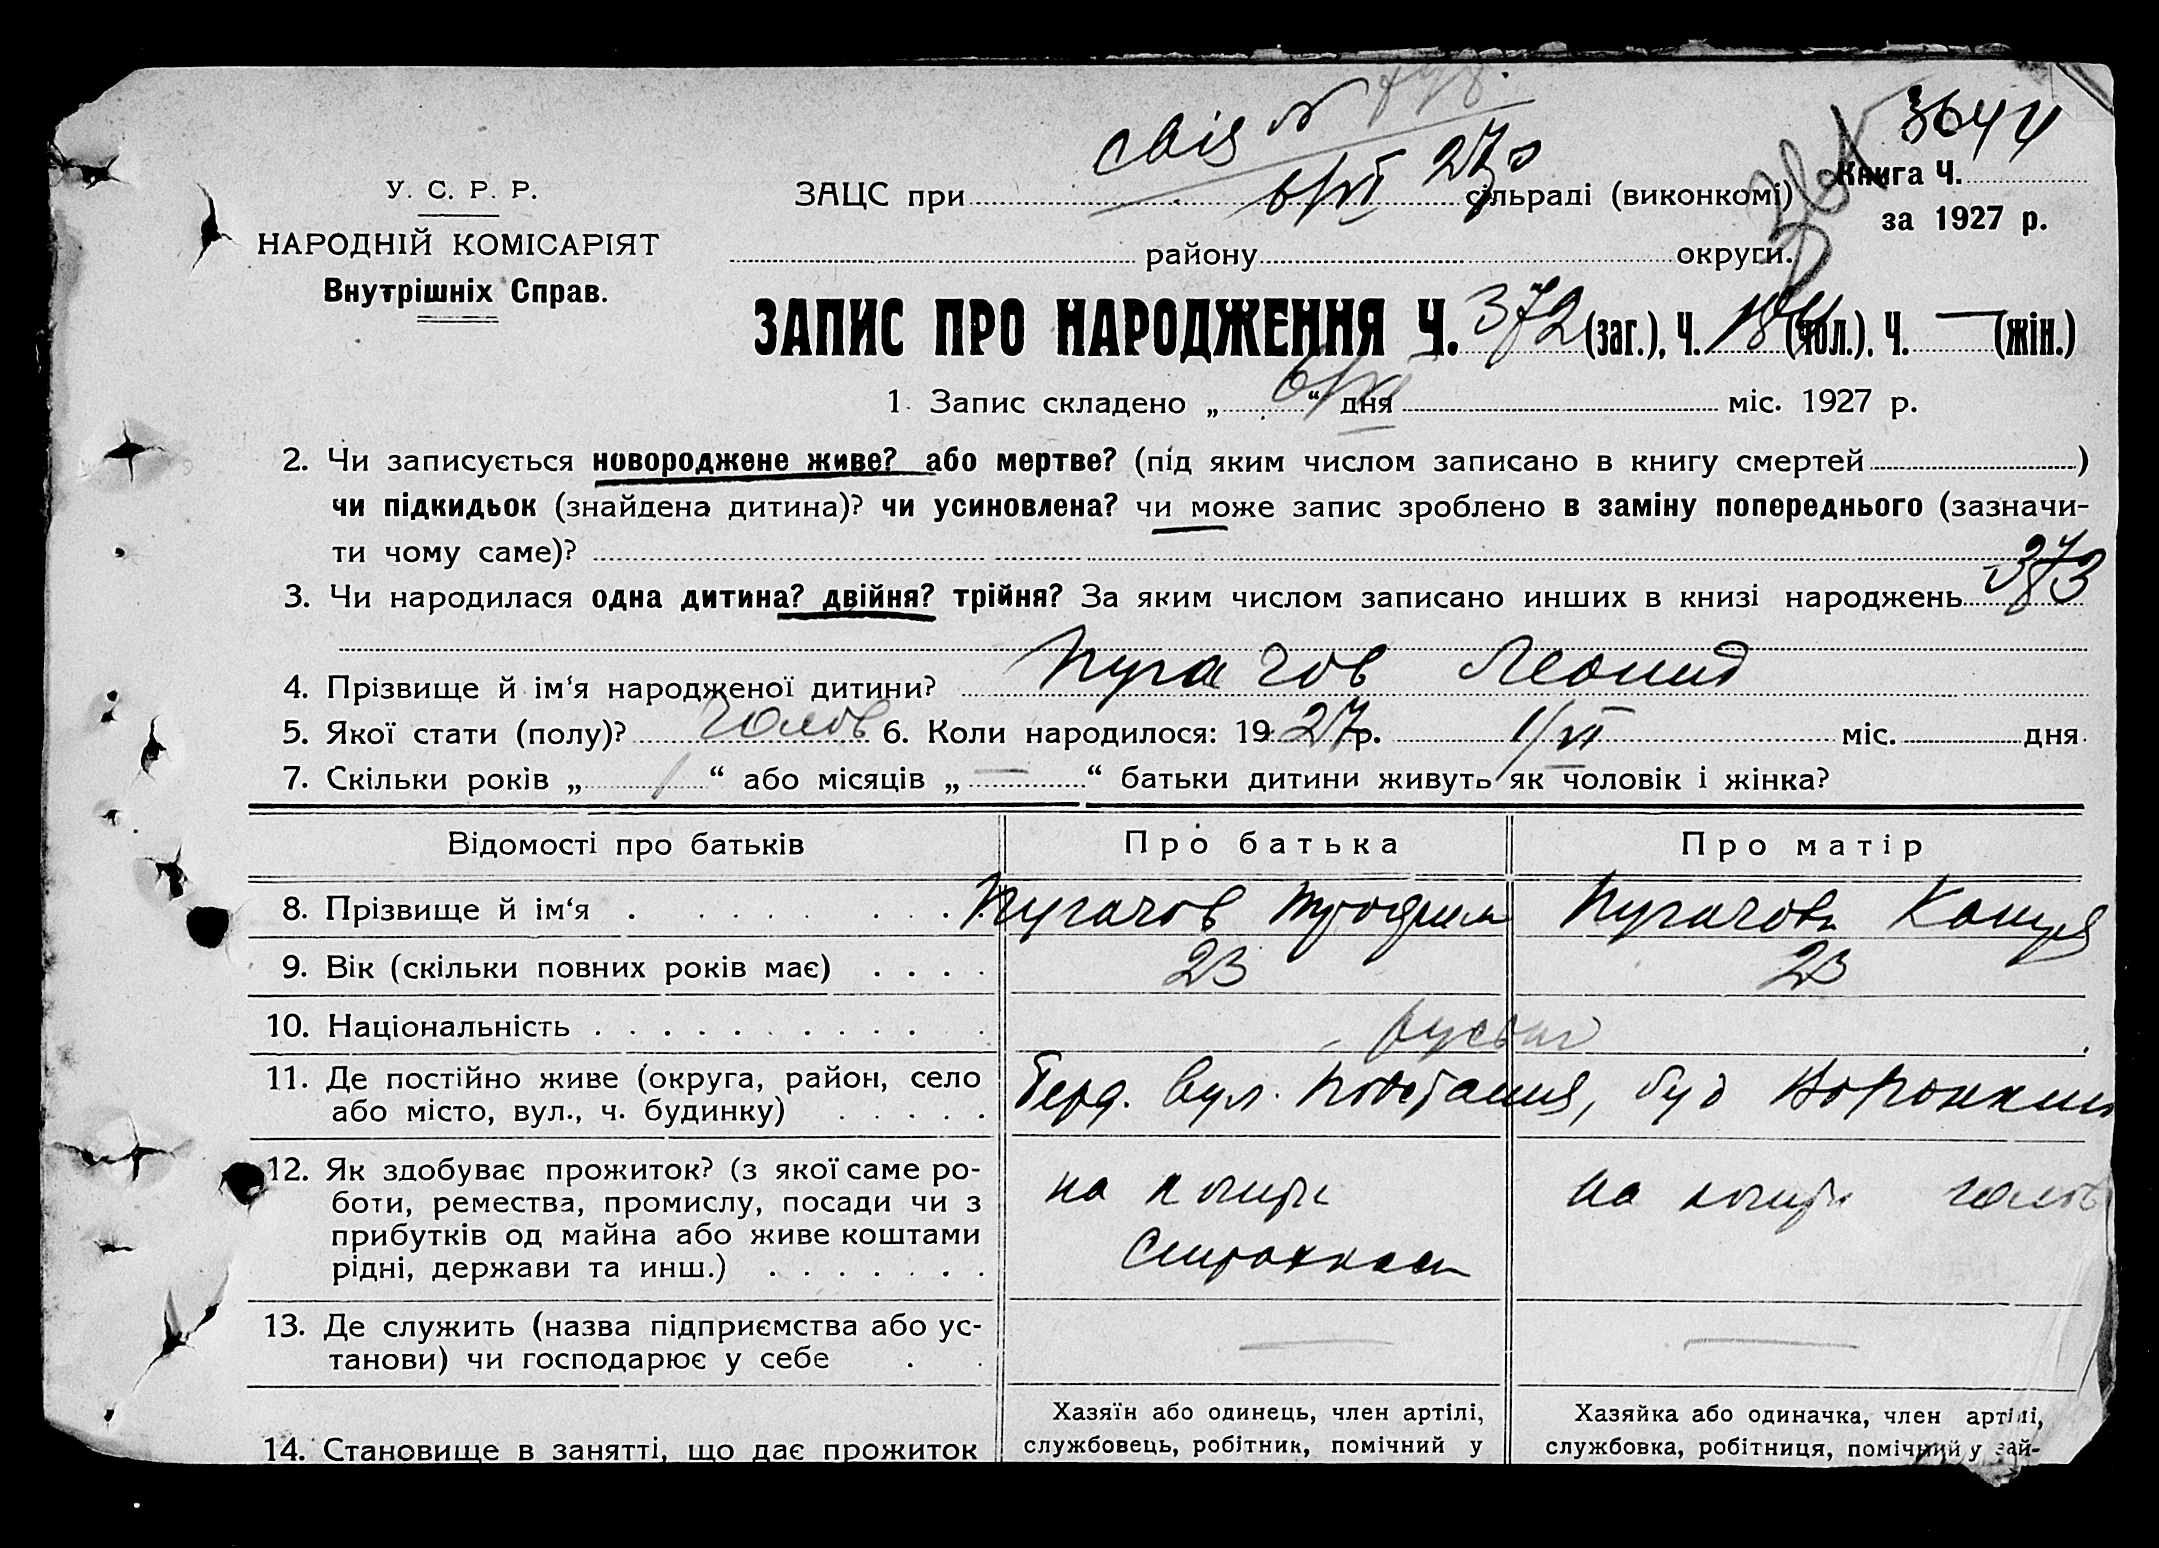 свід №
6/VI 27р
3644
У. С. Р. Р.
НАРОДНІЙ КОМІСАРІЯТ
Внутрішніх Справ.
ЗАЦС при сільраді (виконкомі)
Книга Ч.
за 1927 р.
району округи.
ЗАПИС ПРО НАРОДЖЕННЯ Ч. 372 (заг.), Ч. (чол.), Ч. — (жін.)
1. Запис складено „ 6/VI “ дня міс. 1927 р.
2. Чи записується новороджене живе? або мертве? (під яким числом записано в книгу смертей )
чи підкидьок (знайдена дитина)? чи усиновлена? чи може запис зроблено в заміну попереднього (зазначи-
ти чому саме)?
3. Чи народилася одна дитина? двійня? трійня? За яким числом записано инших в книзі народжень 373
4. Прізвище й ім‘я народженої дитини? Пугачов Леонид
5. Якої стати (полу)? чолов 6. Коли народилося: 1927 р. 1/VI міс. дня
7. Скільки років „ 1 “ або місяців „ — “ батьки дитини живуть як чоловік і жінка?
Відомості про батьків Про батька Про матір
8. Прізвище й ім‘я Пугачов Пугачова
9. Вік (скільки повних років має) 23 23
10. Національність
11. Де постійно живе (округа, район, село
або місто, вул., ч. будинку)
Берд. вул. буд
12. Як здобуває прожиток? (з якої саме ро-
боти, ремества, промислу, посади чи з
прибутків од майна або живе коштами
рідні, держави та инш.)
на на чолов
13. Де служить (назва підприємства або ус-
танови) чи господарює у себе — —
14. Становище в занятті, що дає прожиток
Хазяїн або одинець, член артілі,
службовець, робітник, помічний у
Хазяйка або одиначка, член артілі,
службовка, робітниця, помічний у зай-